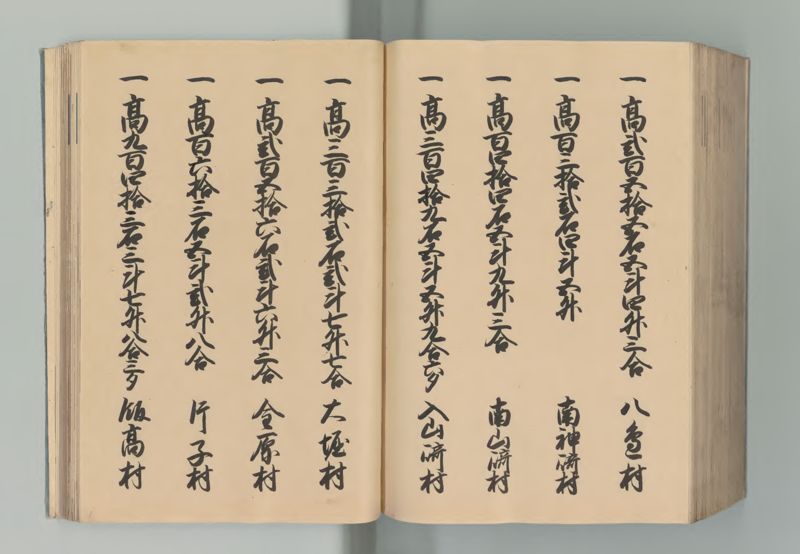 一 高弐百五拾五石五斗四升三合 八邉村
一 高百三拾弐石四斗五升 南神崎村
一 高百四拾四石五斗九升三合 南山崎村
一 高三百四拾九石五斗五升九合六夕 入山崎村
一 高三百三拾弐石弐斗七升七合 大堀村
一 高弐百五拾六石弐斗六升三合 金原村
一 高百六拾三石五斗弐升八合 片子村
一 高九百四拾三石三斗七升八合三夕 飯高村